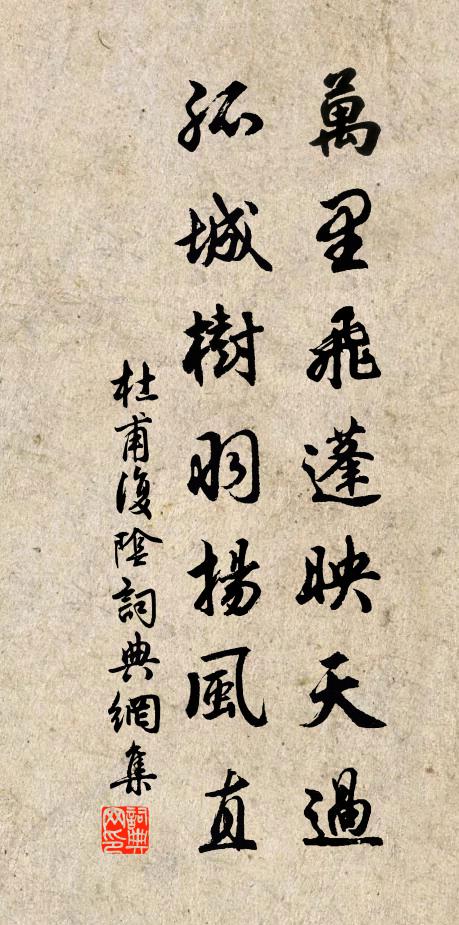 萬里飛蓬映天過
孤城樹羽揚風直
杜甫復陰詞典網集
詞典
网印